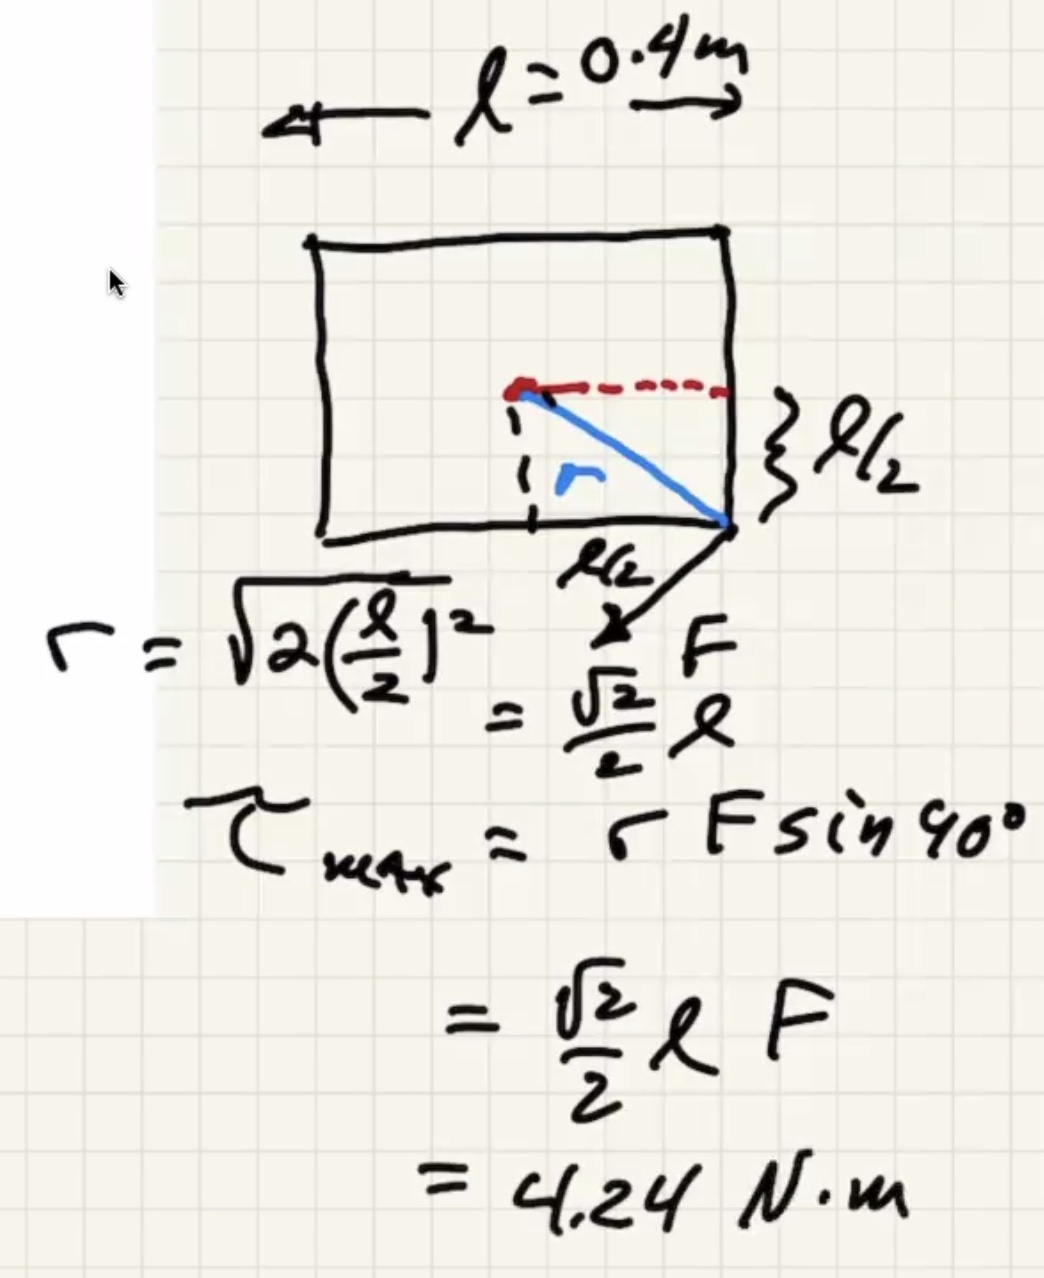 l = 0.4m
} l/2
r
l/2
F
r = √2(l/2)²
= √2/2 l
τmax = r F sin 90°
= √2/2 l F
= 4.24 N·m